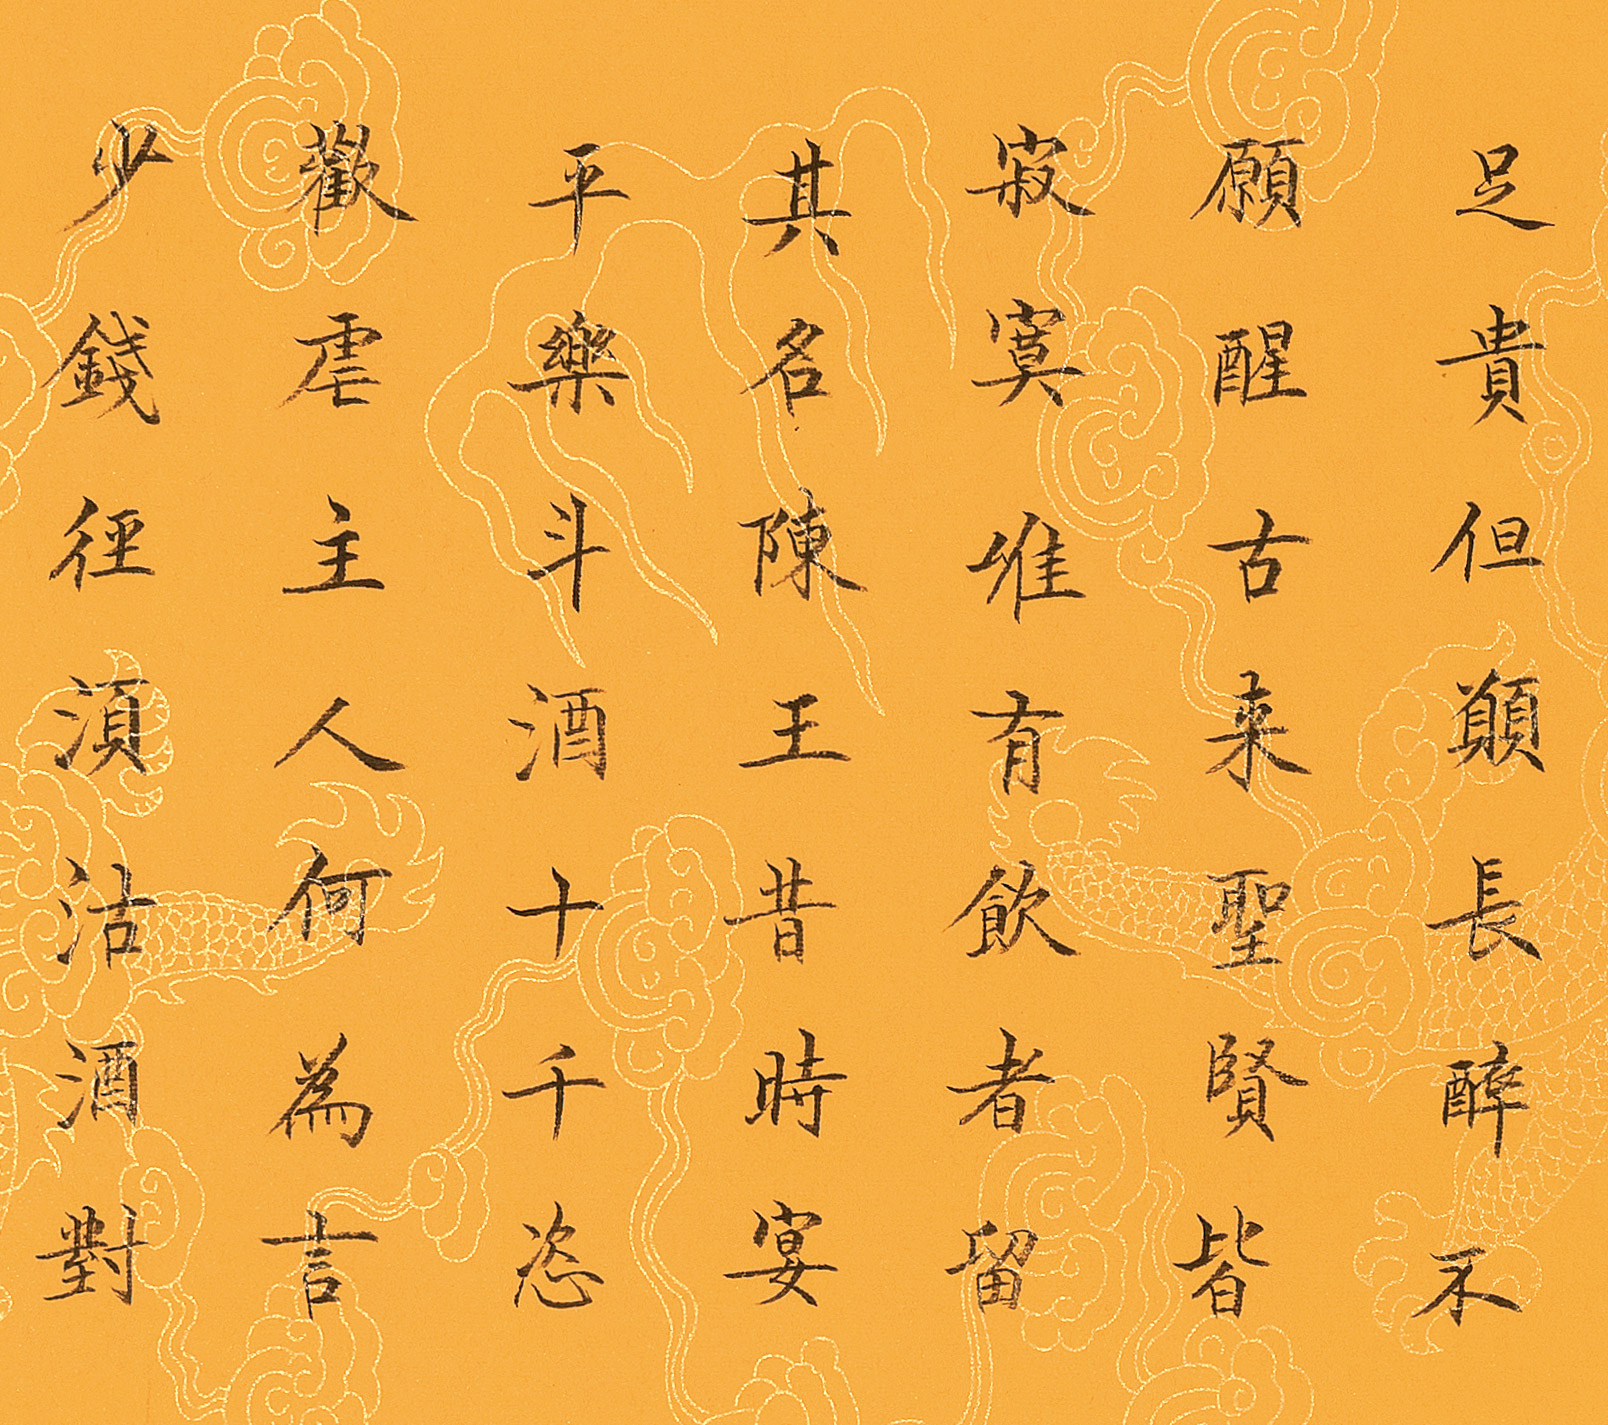 足貴但願長醉不
願醒古来聖賢皆
寂寞惟有飲者留
其名陳王昔時宴
平樂斗酒十千恣
歡虐主人何為言
少錢徑湏沽酒對